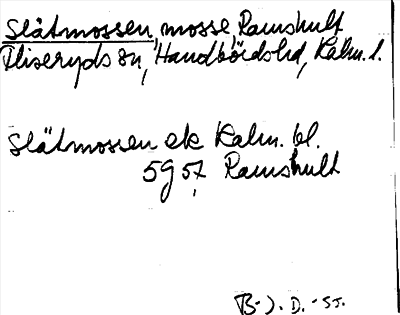 Slätmossen, mosse, Ramshult
Fliseryds sn, Handbörds hd, Kalm. l.
Slätmossen ek Kalm. bl.
5957 Ramshult
B-J. D. -55.